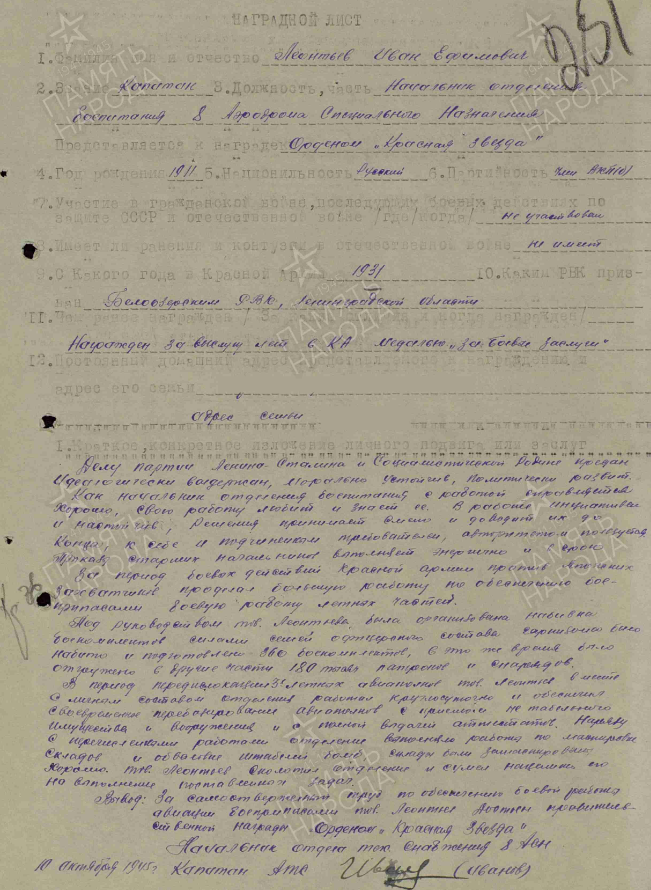 НАГРАДНОЙ ЛИСТ
251
1. Фамилия имя и отчество Леонтьев Иван Ефимович
2. Звание Капитан 3. Должность, часть Начальник отделения
боепитания 8 Аэродрома Специального Назначения
Представляется к награде Орденом „Красная Звезда"
4. Год рождения 1911 5. Национальность Русский 6. Партийность член ВКП(б)
7. Участие в гражданской войне, последующих боевых действиях по
защите СССР и отечественной войне /где/когда/ не участвовал
8. Имеет ли ранения и контузии в отечественной войне не имеет
9. С какого года в Красной Армии 1931 10. Каким РВК приз-
ван Белозерским РВК, Ленинградской области
11. Чем ранее награжден /за какие отличия и когда награжден/
Награжден за выслугу лет в КА медалью „За боевые заслуги"
12. Постоянный домашний адрес представляемого к награждению и
адрес его семьи
адрес семьи
I. Краткое, конкретное изложение личного подвига или заслуг
Делу партии Ленина-Сталина и Социалистической Родине предан
Идеологически выдержан, морально устойчив, политически развит.
Как начальник отделения боепитания с работой справляется
хорошо, свою работу любит и знает ее. В работе инициативен
и настойчив, решения принимает смело и доводит их до
конца, к себе и подчиненным требователен, авторитетом пользуется
Приказы старших начальников выполняет энергично и в срок
За период боевых действий Красной армии против Японских
захватчиков проделал большую работу по обеспечению бое-
припасами боевую работу летных частей.
Под руководством тов. Леонтьева была организована набивка
боекомплектов силами семей офицерского состава гарнизона было
набито и подготовлено 360 боекомплектов, в это же время было
отгружено в другие части 180 тысяч патронов и снарядов.
В период передислокации 3х летных авиаполков тов. Леонтьев вместе
с личным составом отделения работал круглосуточно и обеспечил
своевременно перебазирование авиаполков с приемом не табельного
имущества и вооружения и с полной выдачей аттестатов. Наряду
с перечисленными работами отделение выполняло работы по маскировке
складов и обваловке штабелей бомб. склады были замаскированы
хорошо. тов. Леонтьев сколотил отделение и сумел нацелить его
на выполнение поставленных задач.
Вывод: За самоотверженный труд по обеспечению боевой работы
авиации боеприпасами тов. Леонтьев достоин правитель-
ственной награды Орденом „Красная Звезда"
Начальник отдела тех. снабжения 8 АСН
10 октября 1945г Капитан АТС (Иванов)
ПАМЯТЬ НАРОДА